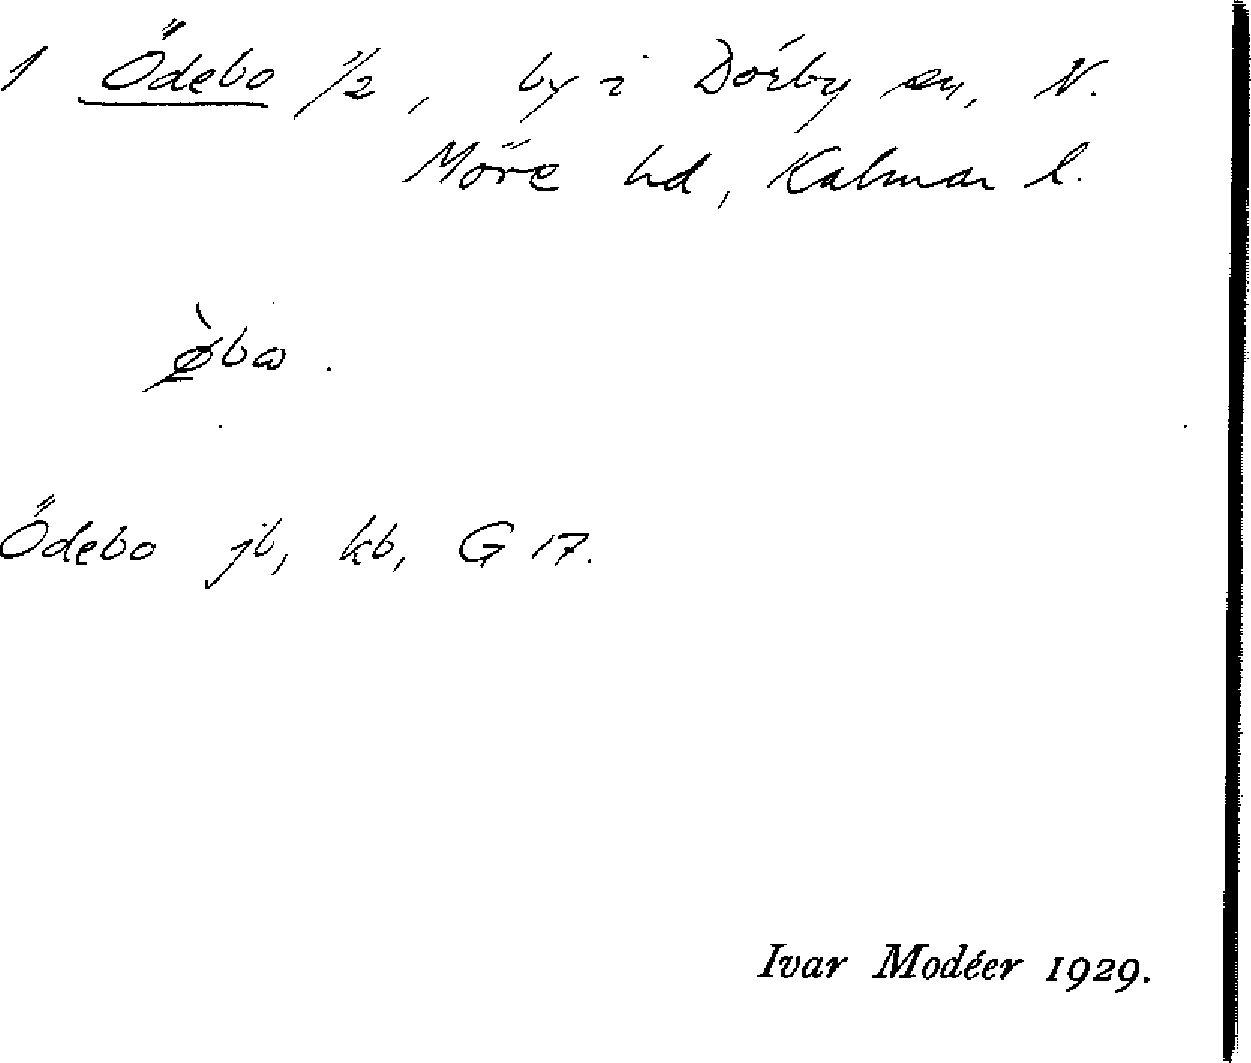 1 Ödebo 1/2, by i Dörby sn, N.
Möre hd, Kalmar l.
Ödebo jb, kb, G 17.
Ivar Modéer 1929.